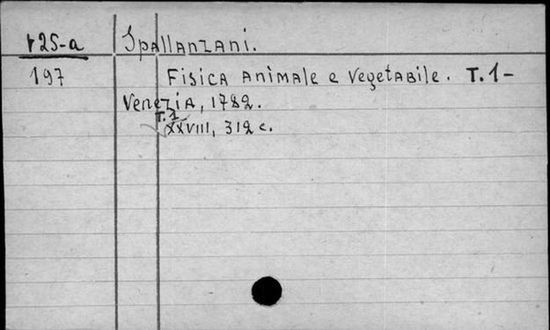 125-a Spallanzani.
197 Fisica animale e vegetabile. T.1-
Venezia, 1782.
T.1
XXVIII, 312 c.